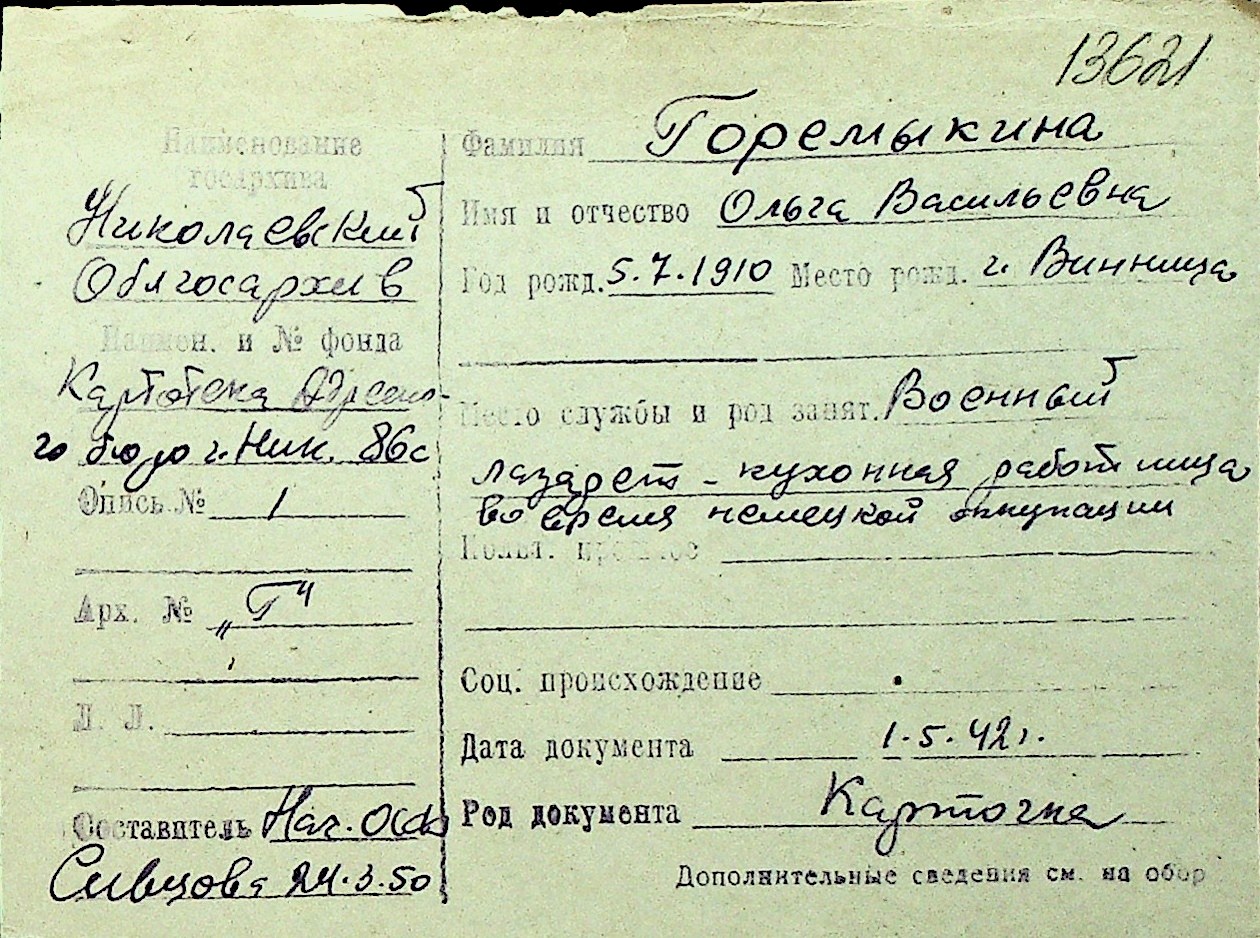 13621
Наименование
госархива
Николаевский
Облгосархив
Наимен. и № фонда
Картотека Адресно-
го бюро г. Ник. 86с
Опись № 1
Арх. № „Г"
Л. Л.
Составитель Нач. ОСФ
Сивцова 24.3.50
Фамилия Горемыкина
Имя и отчество Ольга Васильевна
Год рожд. 5.7.1910 Место рожд. г. Винница
Место службы и род занят. Военный
лазарет - кухонная работница
во время немецкой оккупации
Полит. прошлое
Соц. происхождение
Дата документа 1.5.42г.
Род документа Карточка
Дополнительные сведения см. на обор